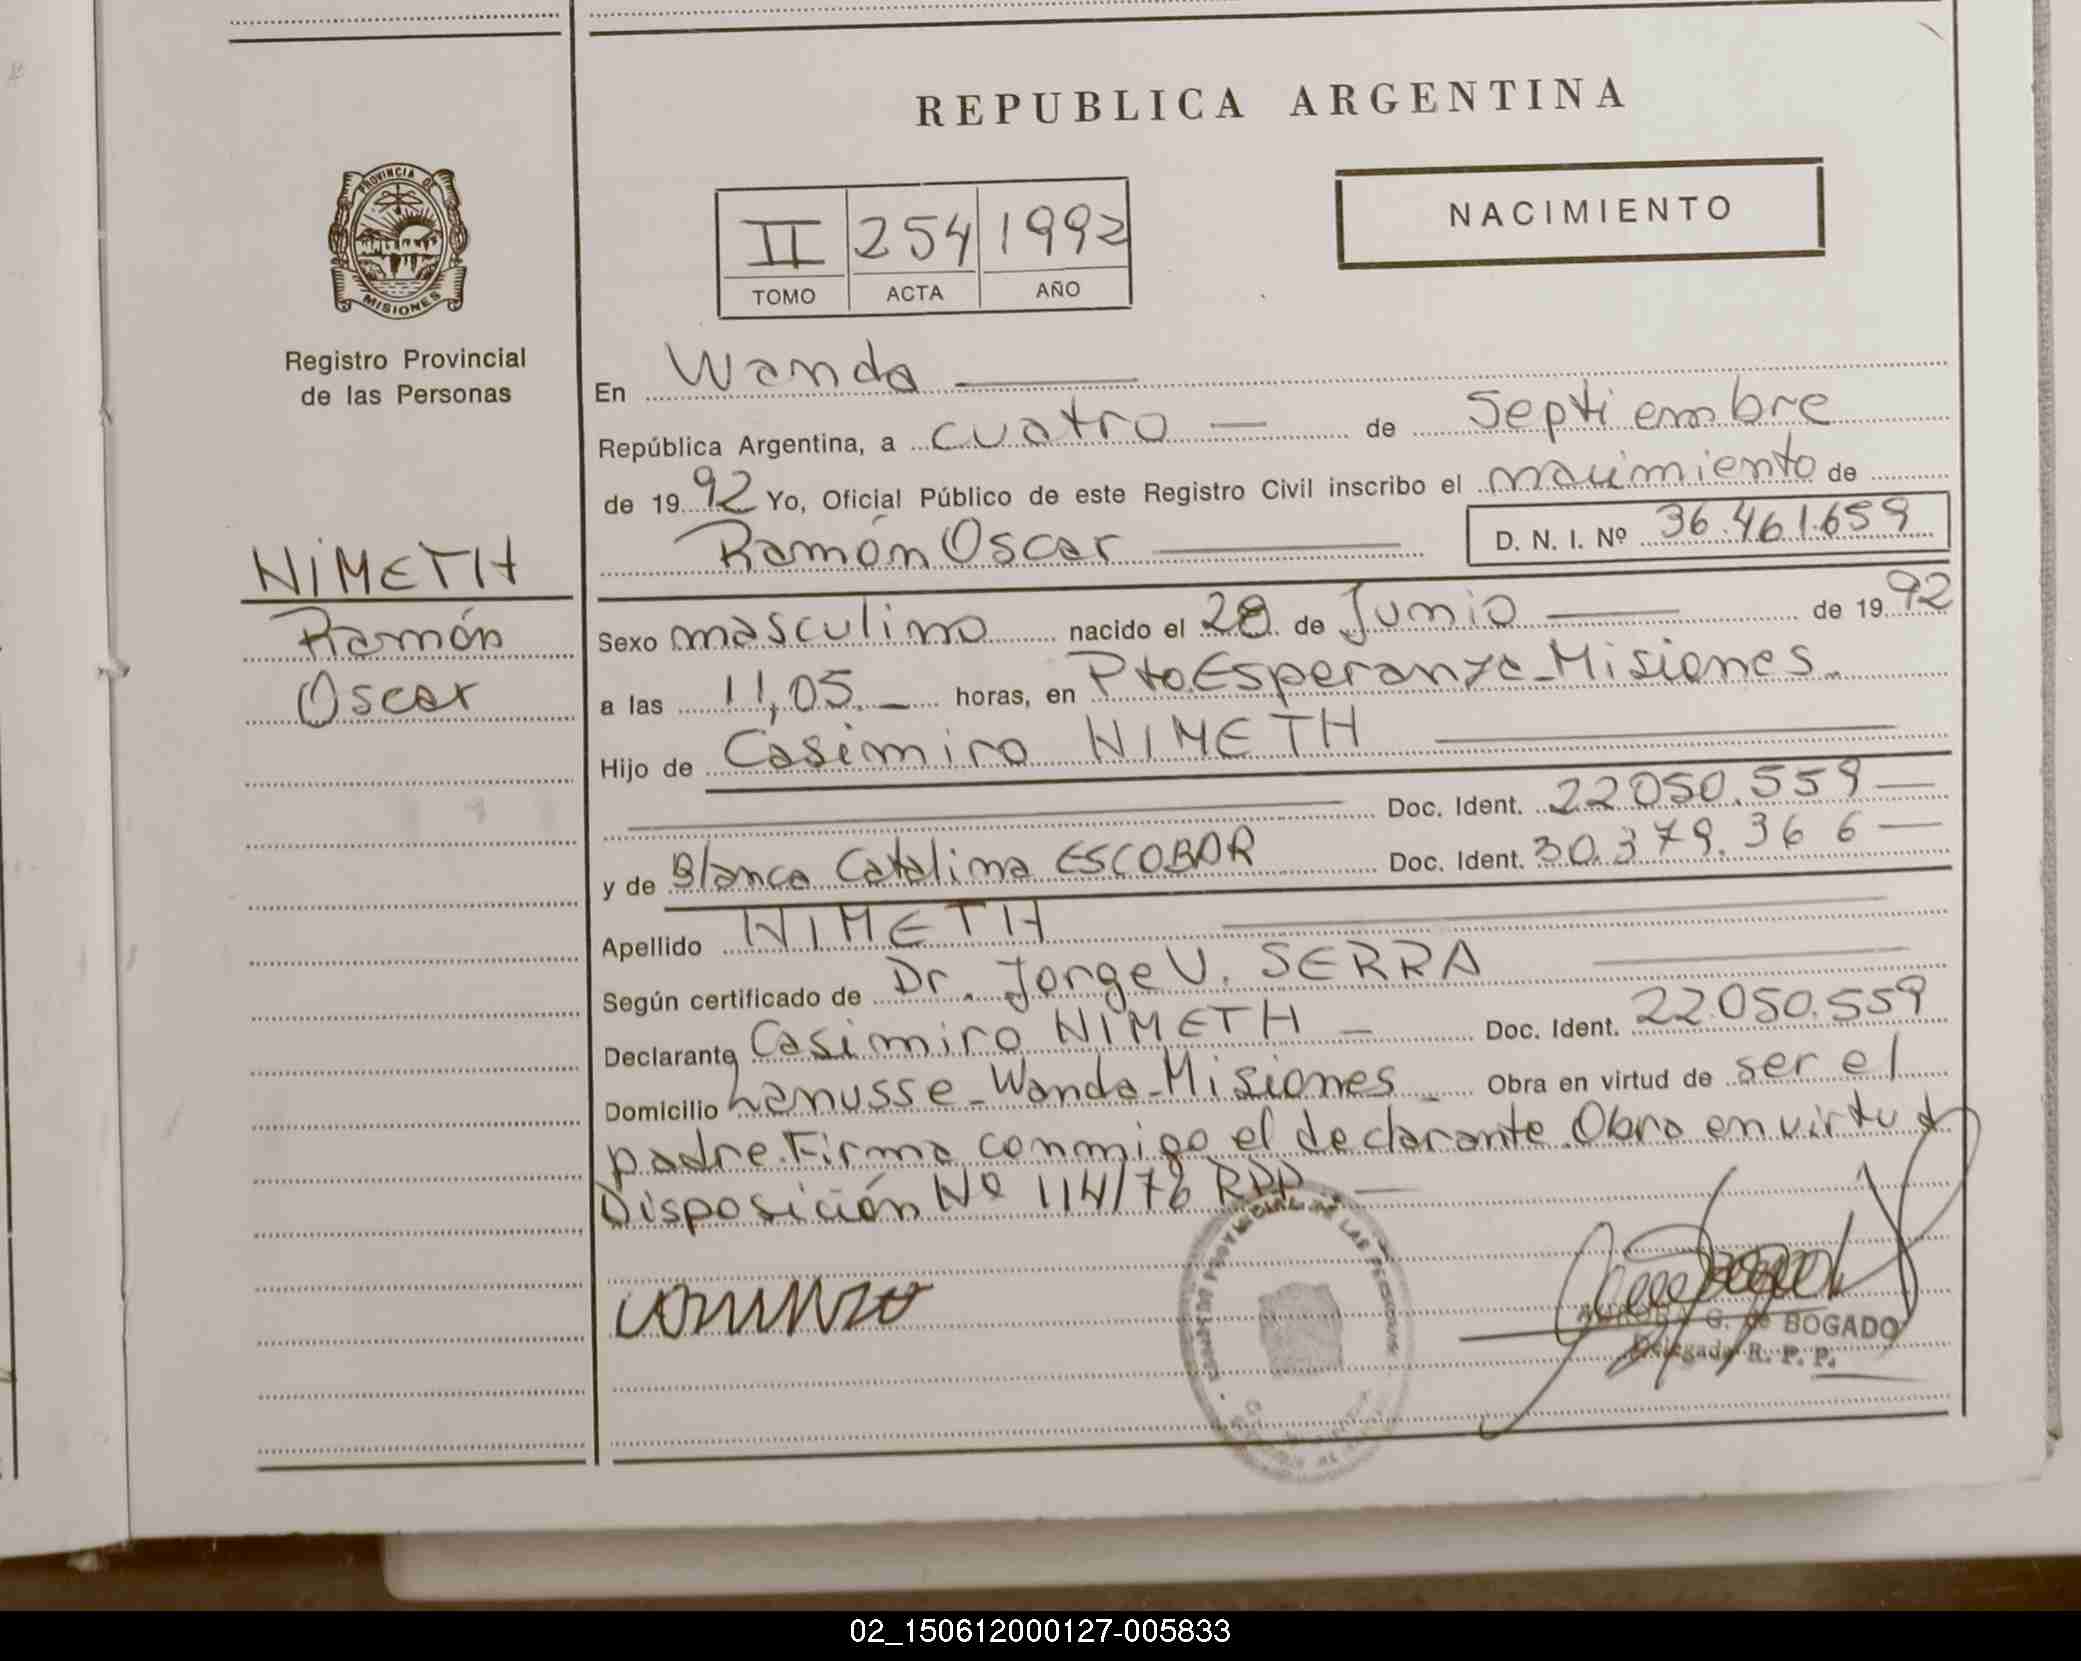 REPUBLICA ARGENTINA
PROVINCIA DE
MISIONES
Registro Provincial
de las Personas
II 254 1992
TOMO ACTA AÑO
NACIMIENTO
NIMETH
Ramón
Oscar
En Wanda
República Argentina, a cuatro de Septiembre
de 1992 Yo, Oficial Público de este Registro Civil inscribo el nacimiento de
Ramón Oscar D. N. I. Nº 36.461.659
Sexo masculino nacido el 28 de Junio de 1992
a las 11,05 horas, en Pto. Esperanza - Misiones
Hijo de Casimiro NIMETH
Doc. Ident. 22050.559
y de Blanca Catalina ESCOBAR Doc. Ident. 30.379.366
Apellido NIMETH
Según certificado de Dr. Jorge V. SERRA
Declarante Casimiro NIMETH Doc. Ident. 22.050.559
Domicilio Lanusse - Wanda - Misiones Obra en virtud de ser el
padre. Firma conmigo el declarante. Obro en virtud
Disposición Nº 114/76 RPP.
G. de BOGADO
Delegada R. P. P.
02_150612000127-005833